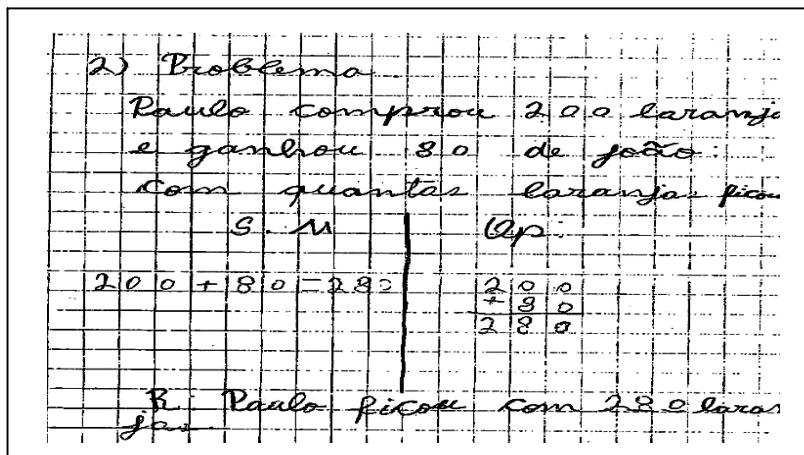 2) Problema.
Paulo comprou 200 laranja
e ganhou 80 de joão.
com quantas laranjas ficou
S. M Op:
200+80=280 200
+ 80
280
R: Paulo ficou com 280 laran
jas